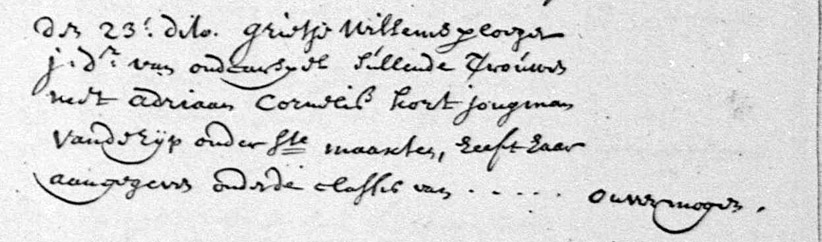 den 23.' dito. grietje Willems ploeger
j: dr van oudcarspel sullende Trouwen
met adriaan Cornelisz kort jongman
vande Rijp onder Ste maarten, heeft haar
aangegeven onder de classis van - - - - - onvermogen.